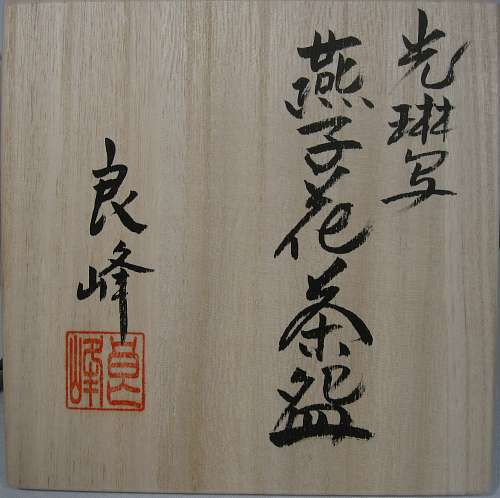 光琳写
燕子花茶盌
良峰
良峰